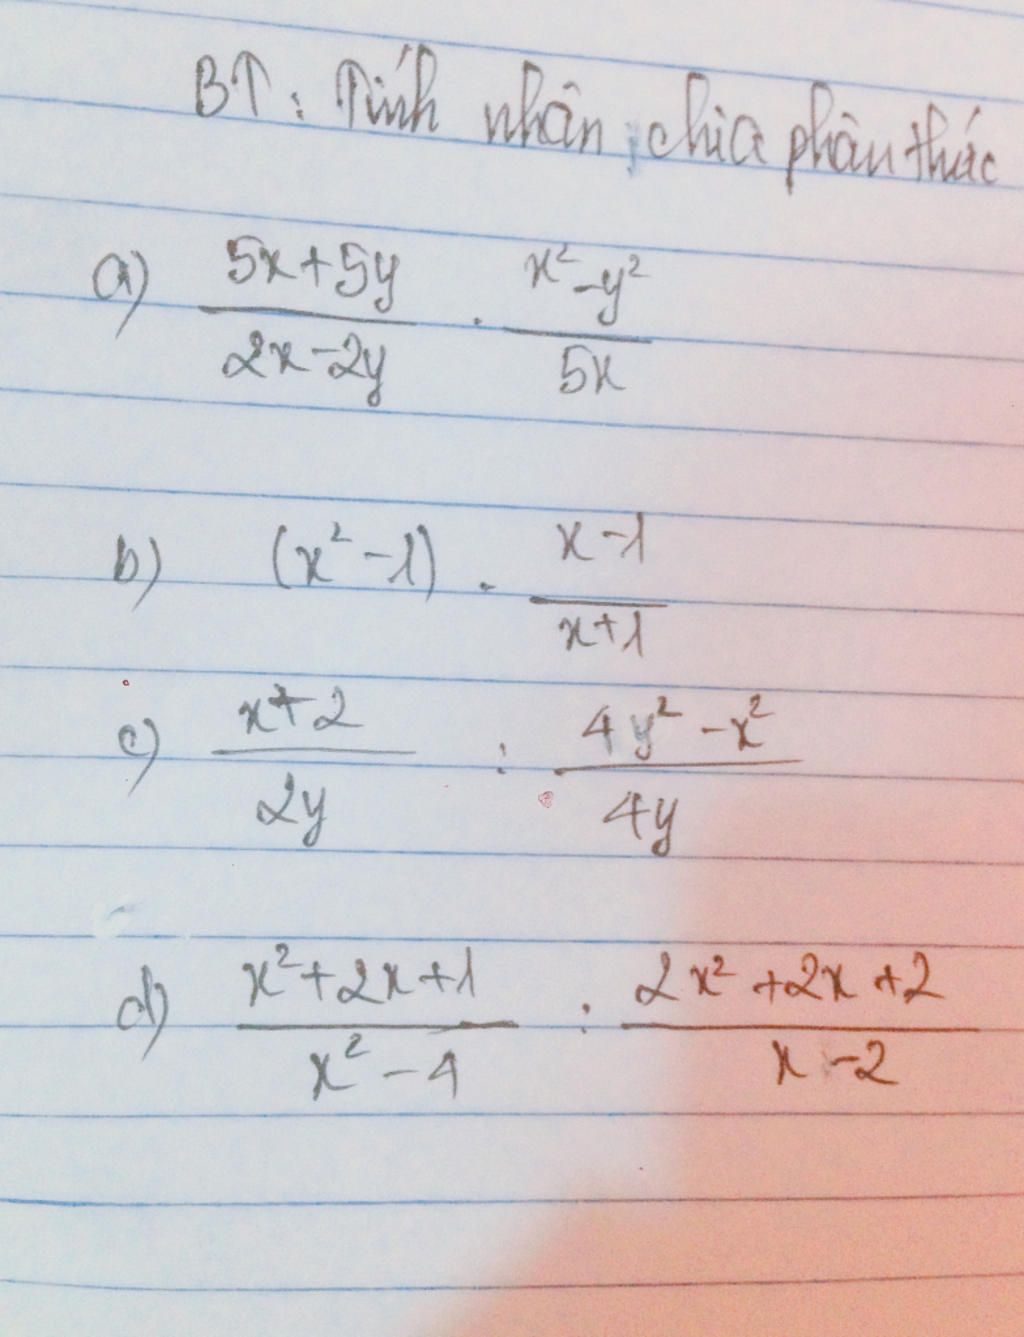 BT: Tính nhân, chia phân thức
a) (5x+5y)/(2x-2y) . (x²-y²)/(5x)
b) (x²-1) . (x-1)/(x+1)
c) (x+2)/(2y) : (4y²-x²)/(4y)
d) (x²+2x+1)/(x²-4) : (2x²+2x+2)/(x-2)